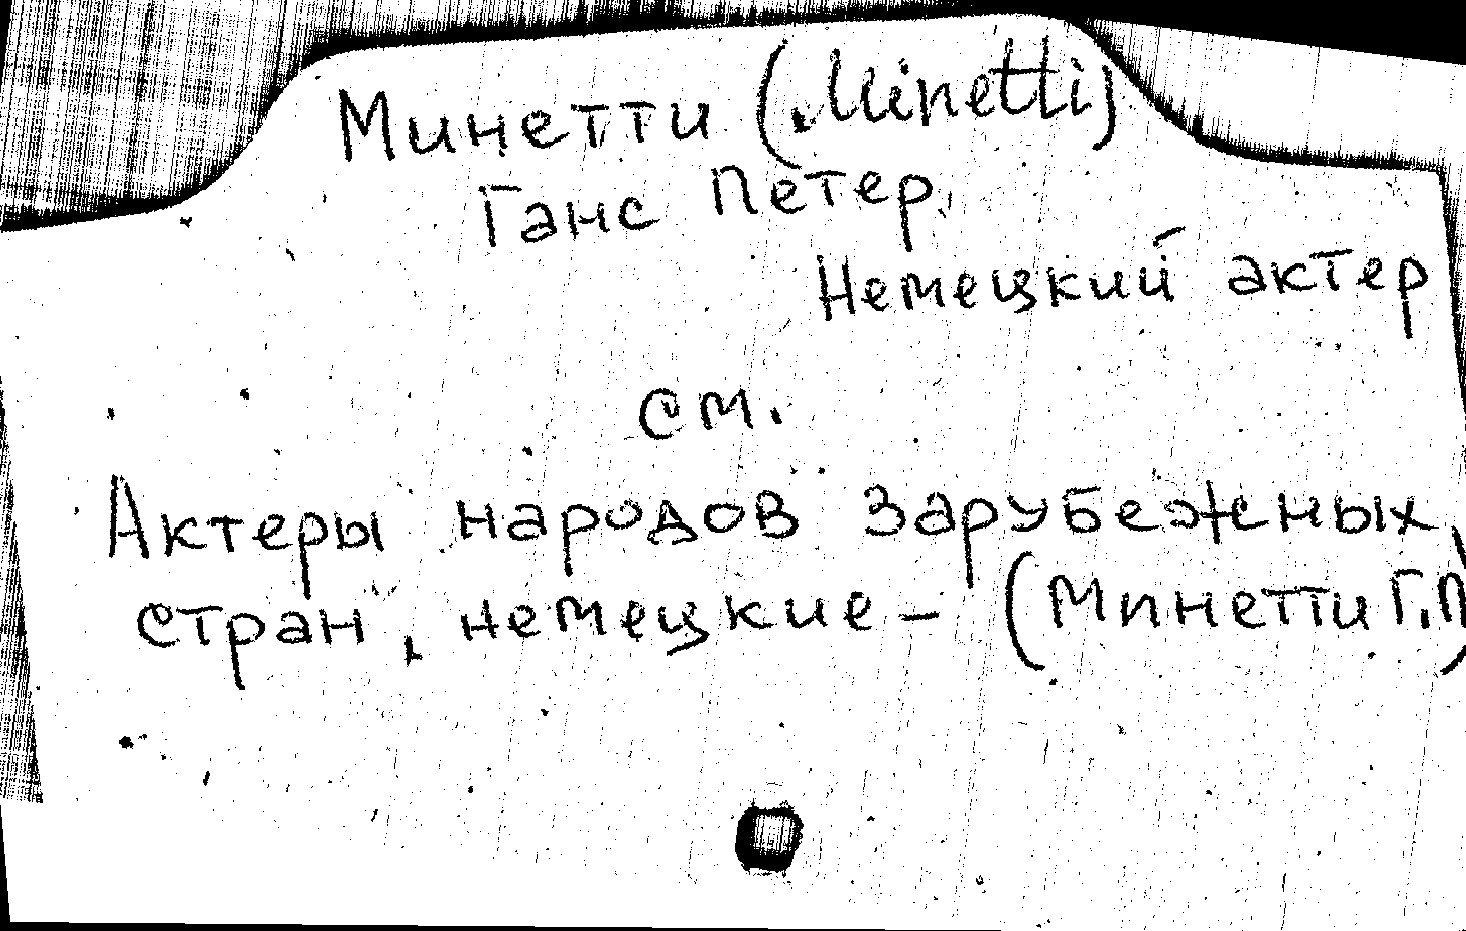 Минетти (Minetti)
Ганс Петер.
Немецкий актер
см.
Актеры народов зарубежных
стран, немецкие – (Минетти Г.П)